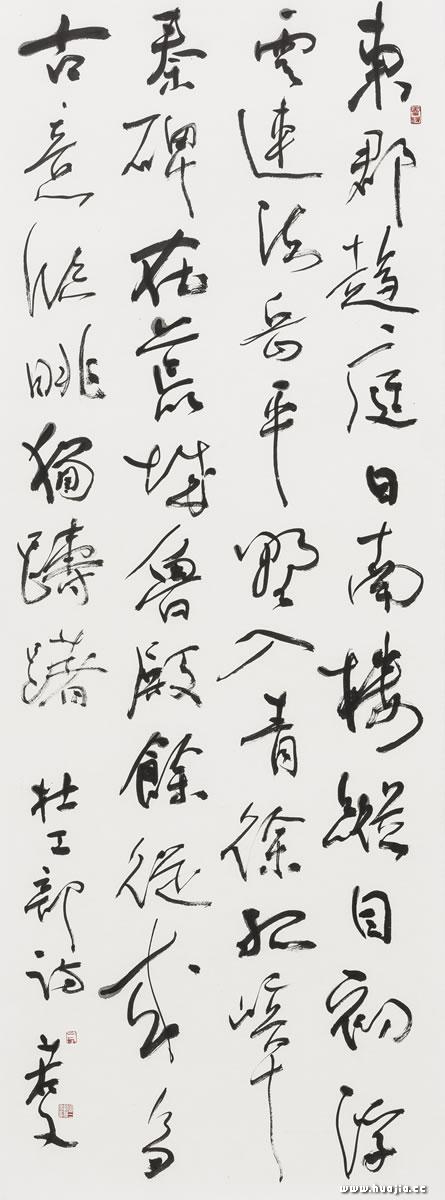 東郡趨庭日南樓縱目初浮
雲連海岳平野入青徐孤嶂
秦碑在荒城魯殿餘從來多
古意臨眺獨躊躇 杜工部詩
www.huajia.cc